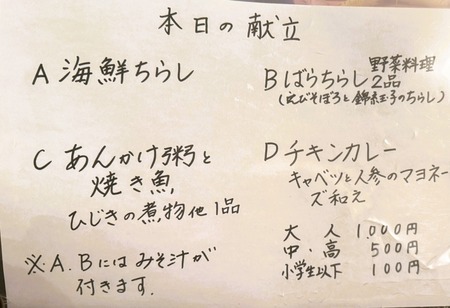 本日の献立
A 海鮮ちらし
B ばらちらし 野菜料理2品
(えびそぼろと錦糸玉子のちらし)
C あんかけ粥と
焼き魚
ひじきの煮物他1品
※A.Bにはみそ汁が
付きます.
D チキンカレー
キャベツと人参のマヨネー
ズ和え
大人 1,000円
中・高 500円
小学生以下 100円